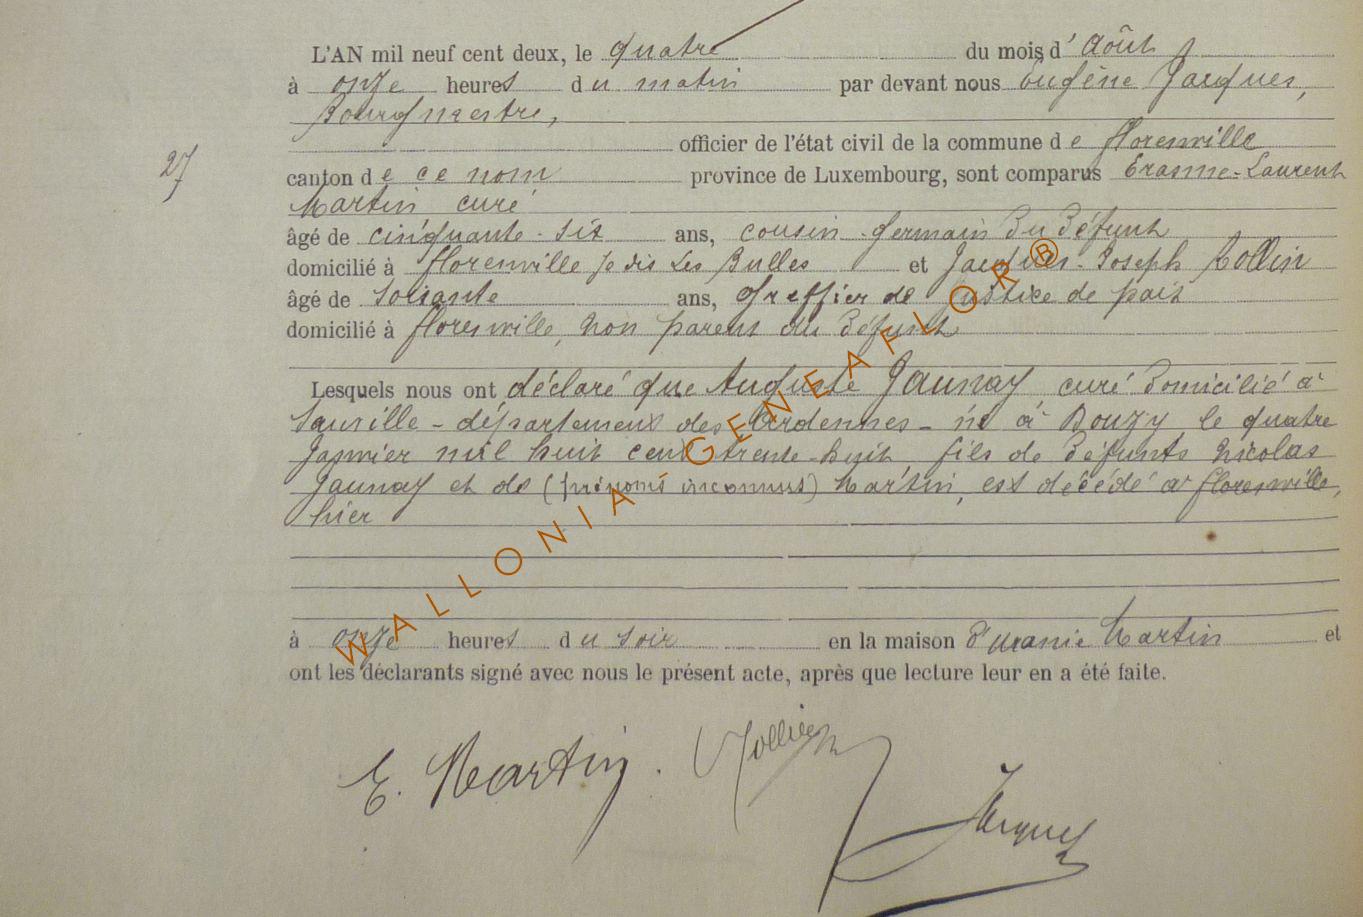 L'AN mil neuf cent deux, le quatre du mois d'Août
à onze heures du matin par devant nous Eugène Jacques,
Bourgmestre,
officier de l'état civil de la commune de Florenville
27
canton de ce nom province de Luxembourg, sont comparus Erasme-Laurent
Martin curé
âgé de cinquante-six ans, cousin-germain du défunt
domicilié à Florenville je dis Les Bulles et Jacques-Joseph Rollin
âgé de soixante ans, Greffier de justice de paix
domicilié à Florenville, non parent du défunt
Lesquels nous ont déclaré que Auguste Jaunay, curé domicilié à
Sauville - département des Ardennes - né à Bouzy le quatre
Janvier mil huit cent trente-huit fils de défunts Nicolas
Jaunay et de (prénoms inconnus) Martin, est décédé à Florenville,
hier
à onze heures du soir en la maison d'Uranie Martin et
ont les déclarants signé avec nous le présent acte, après que lecture leur en a été faite.
E. Martin. Rollin
Jacques
WALLONIA-GENEAFLOR®